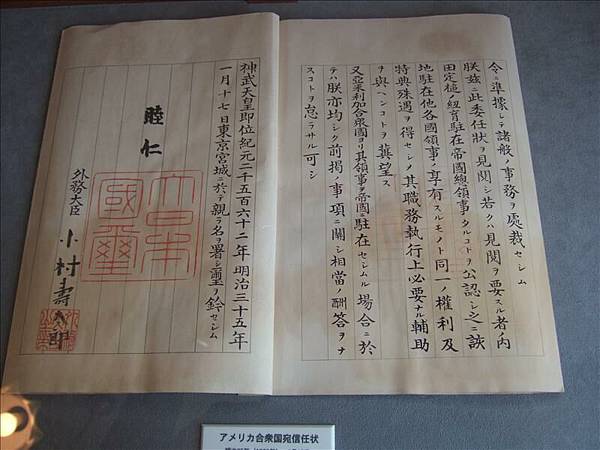 令ニ準據シテ諸般ノ事務ヲ處裁セシム
朕玆ニ此委任狀ヲ見閱シ若クハ見閱ヲ要スル者ノ內
田定槌ノ紐育駐在帝國總領事タルコトヲ公認シ之ニ該
地駐在他各國領事ノ享有スルモノト同一ノ權利及
特典殊遇ヲ得セシメ其職務執行上必要ナル輔助
ヲ與ヘンコトヲ冀望ス
又亞米利加合衆國ヨリ其領事ヲ帝國ニ駐在セシムル場合ニ於
テハ朕亦均シク前揭ノ事項ニ關シ相當ノ酬答ヲナ
スコトヲ怠ラサル可シ
神武天皇卽位紀元二千五百六十二年明治三十五年
一月十七日東京宮城ニ於テ親ラ名ヲ署シ璽ヲ鈐セシム
睦仁
大日本國璽
外務大臣 小村壽太郎
アメリカ合衆国宛信任状